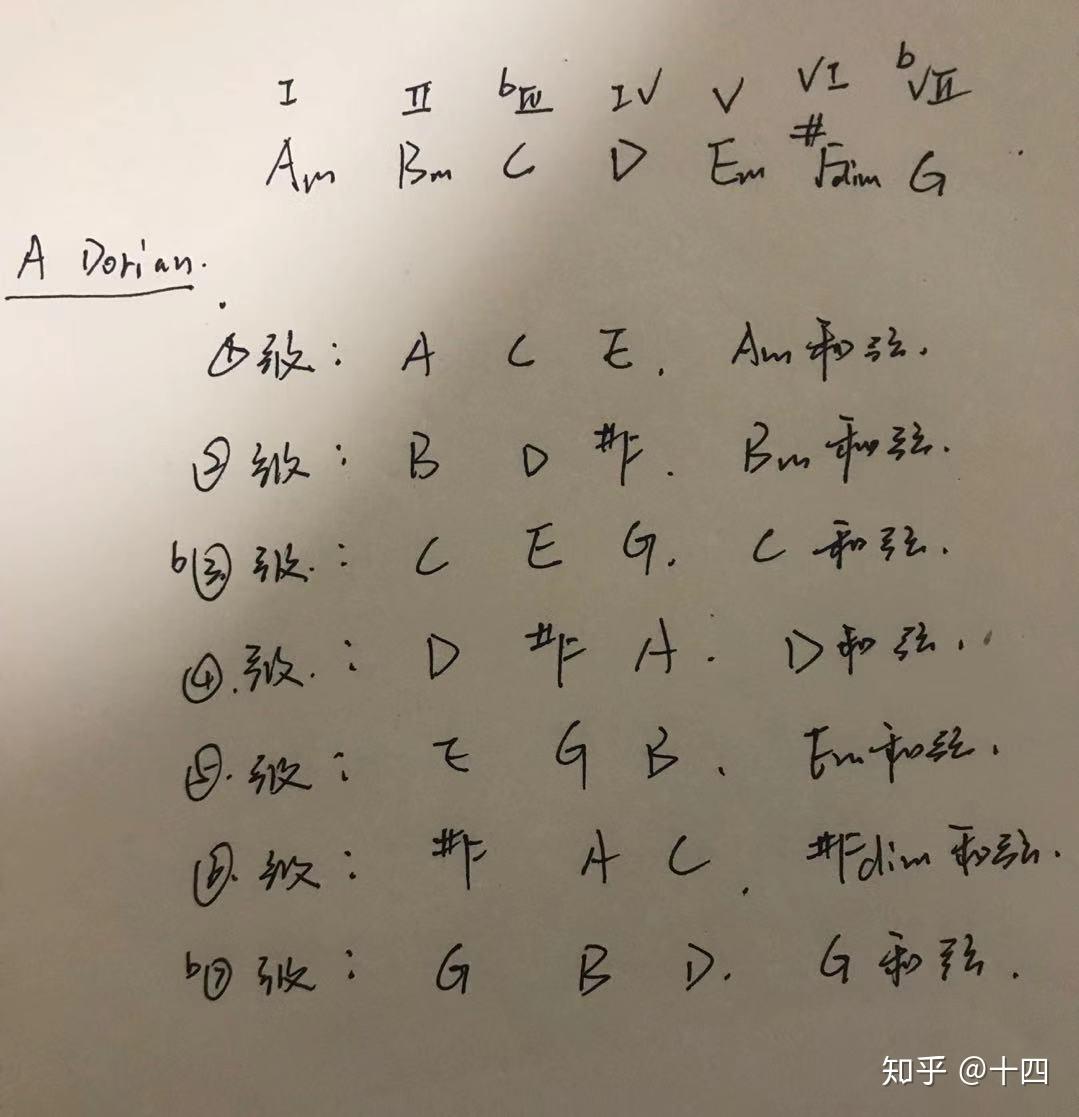 I II bIII IV V VI bVII
Am Bm C D Em #Fdim G
A Dorian.
①级: A C E. Am和弦.
②级: B D #F. Bm和弦.
b③级: C E G. C和弦.
④级: D #F A. D和弦.
⑤级: E G B. Em和弦.
⑥级: #F A C. #Fdim和弦.
b⑦级: G B D. G和弦.
知乎 @十四